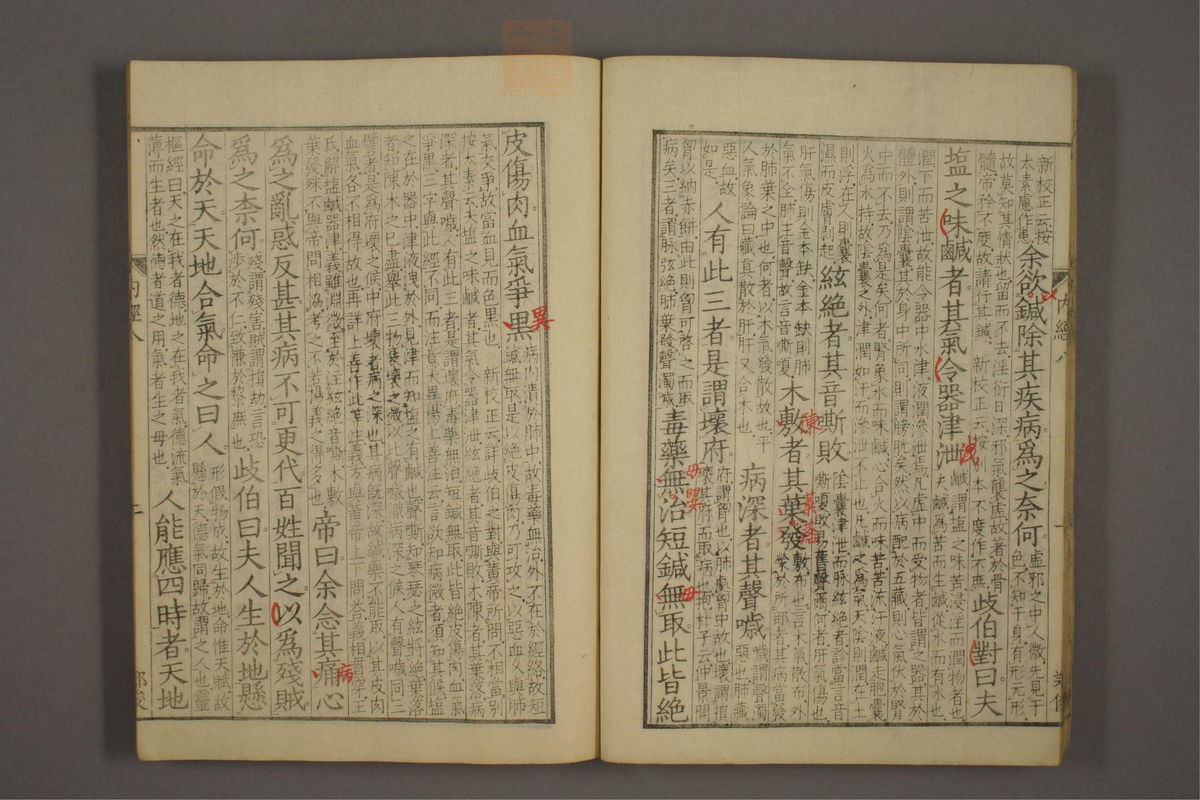 新校正云按
太素慮作患
余欲鍼除其疾病爲之奈何
虛邪之中人微先見于
色不知于身有形无形
故莫知其情狀也留而不去淫衍日深邪氣襲虛故著於骨
髓帝矜不度故請行其鍼 新校正云按別本不度作不庶
歧伯對曰夫
塩之味鹹者其氣令器津泄
洩
鹹謂塩之味苦浸淫而潤物者也
夫鹹爲苦而生鹹從水而有水也
潤下而苦泄故能令器中水津液潤滲泄焉凡虛中而受物者皆謂之器其於
體外則謂陰囊其於身中所同則謂膀胱矣然以病配於五藏則心氣伏於腎
中而不去乃爲是矣何者腎象水而味鹹心合火而味苦苦流汗液鹹走胞囊
火爲水持故陰囊之外津潤如汗而滲泄不止也凡鹹之爲氣天陰則潤在土
則浮在人則囊
濕而皮膚剥起
絃絶者其音嘶敗
陰囊津泄而脉絃絶者診當言音
嘶嗄敗易舊聲爾何者肝氣傷也
肝氣傷則金本缺金本缺則肺
氣不全肺主音聲故言音嘶嗄
木敷者其葉發
陳
葉落
敷布也言木氣散布外
榮於所部者其病當發
於肺葉之中也何者以木氣發散故也平
人氣象論曰藏真散於肝肝又合木也
病深者其聲噦
噦謂聲濁
惡也肺藏
惡血故
如是
人有此三者是謂壞府
府謂胷也以肺處胷中故也壞謂損
壞其府而取病也抱朴子云仲景開
胷以納赤餅由此則胷可啓之而取
病矣三者謂脉弦絶肺葉發聲濁噦
毒藥無治短鍼無取此皆絶
毋
毋
皮傷肉血氣爭黑
異
病內潰於肺中故毒藥無治外不在於經絡故短
鍼無取是以絶皮傷肉乃可攻之以惡血久與肺
氣交爭故當血見而色黑也 新校正云詳歧伯之對與黃帝所問不相當別
按太素云夫塩之味鹹者其氣令器津泄絃絶者其音嘶敗木陳者其葉落病
深者其聲噦人有此三者是謂壞府毒藥無治短鍼無取此皆絶皮傷肉血氣
爭黑三字與此經不同而注意大異楊上善注云言欲知病微者須知其候塩
之在於器中津液洩於外見津而知塩之有鹹也聲嘶知琴瑟之絃將絶葉落
者知陳木之已盡舉此三物衰壞之微以比聲噦病深之候人有聲噦同三
譬者是爲府壞之候中府壞者病之深也其病旣深故鍼藥不能取以其皮肉
血氣各不相得故也再詳上善作此等注義方與黃帝上下問荅義相貫穿王
氏解塩鹹器津義雖淵微至於注絃絶音嘶木敷
葉發殊不與帝問相恊考之不若楊義之得多也
帝曰余念其痛心
病
爲之亂惑反甚其病不可更代百姓聞之以爲殘賊
爲之柰何
殘謂殘害賊謂損劫言恐
涉於不仁致慊於黎庶也
歧伯曰夫人生於地懸
命於天天地合氣命之曰人
形假物成故生於地命惟天賦故
懸於天德氣同歸故謂之人也靈
樞經曰天之在我者德地之在我者氣德流氣
薄而生者也然德者道之用氣者生之母也
人能應四時者天地